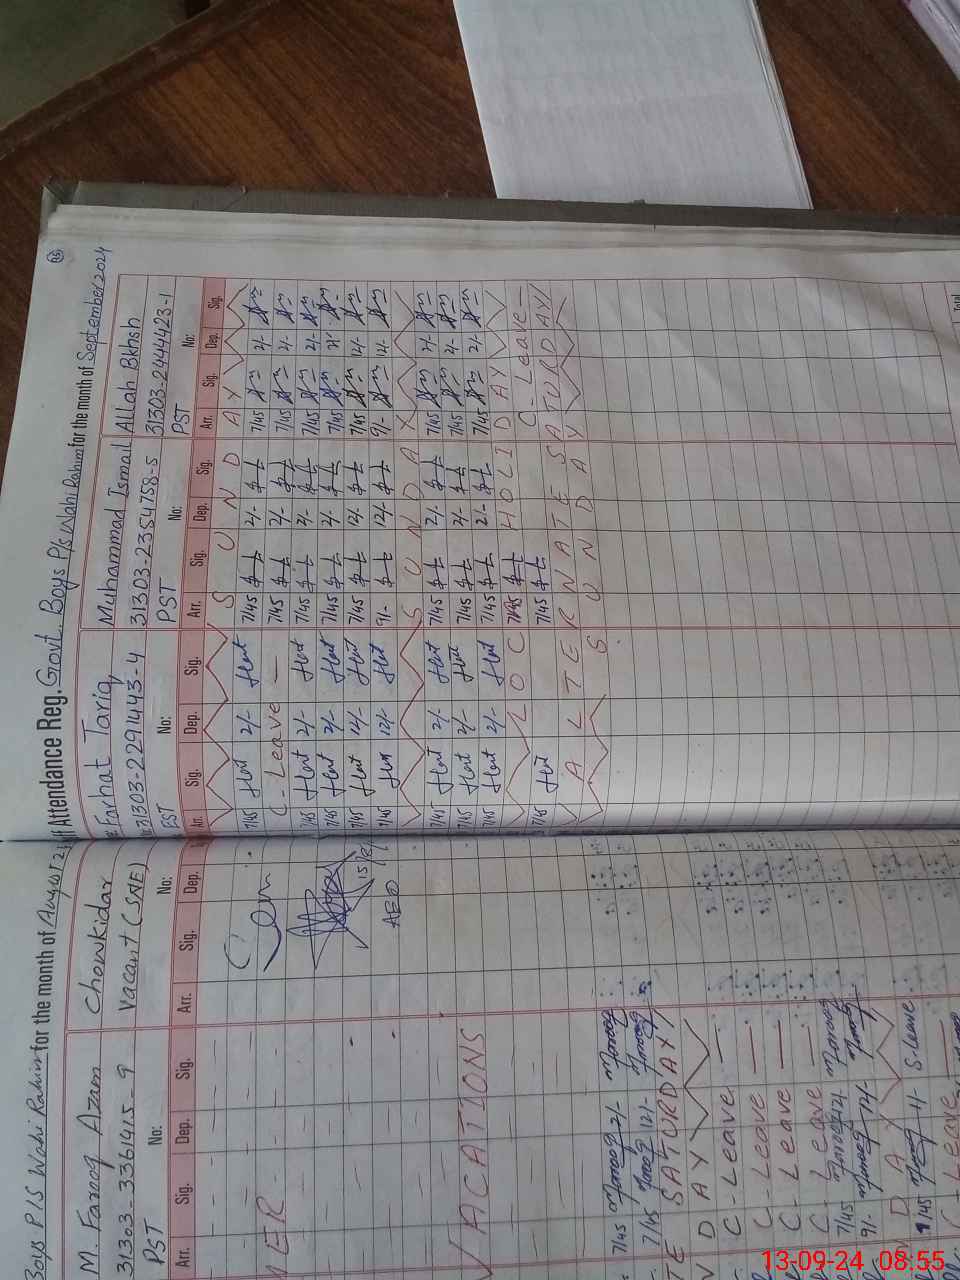 Staff Attendance Reg. Govt. Boys P/s Wahi Rahim for the month of September 2024
Farhat Tariq Muhammad Ismail Allah Bkhsh
31303-2291443-4 31303-2354758-5 31303-2444423-1
PST No: PST No: PST No:
Arr. Sig. Dep. Sig. Arr. Sig. Dep. Sig. Arr. Sig. Dep. Sig.
S U N D A Y
7/45 2/- 7/45 2/- 7/45 2/-
C - Leave — 7/45 2/- 7/45 2/-
7/45 2/- 7/45 2/- 7/45 2/-
7/45 2/- 7/45 2/- 7/45 2/-
7/45 12/- 7/45 12/- 7/45 12/-
7/45 12/- 9/- 12/- 9/- 12/-
S U N D A Y
7/45 2/- 7/45 2/- 7/45 2/-
7/45 2/- 7/45 2/- 7/45 2/-
7/45 2/- 7/45 2/- 7/45 2/-
L O C 7/45 H O L I D A Y
7/45 7/45 C - Leave —
A L T E R N A T E S A T U R D A Y
S U N D A Y
Total
Boys P/S Wahi Rahim for the month of August 2
M. Farooq Azam Chowkidar
31303-3361415-9 Vacant (SNE)
PST No: No:
Arr. Sig. Dep. Sig. Arr. Sig. Dep.
E R
AEO
V A C A T I O N S
7/45 Farooq 2/- Farooq
7/45 Farooq 12/- Farooq
T E S A T U R D A Y
D A Y
C - Leave —
C - Leave —
C - Leave —
C Leave —
7/45 Farooq 12/- Farooq
9/- Farooq 12/- Farooq
N D A Y
7/45 Farooq 11/- S-Leave
C - Leave
13-09-24 08:55